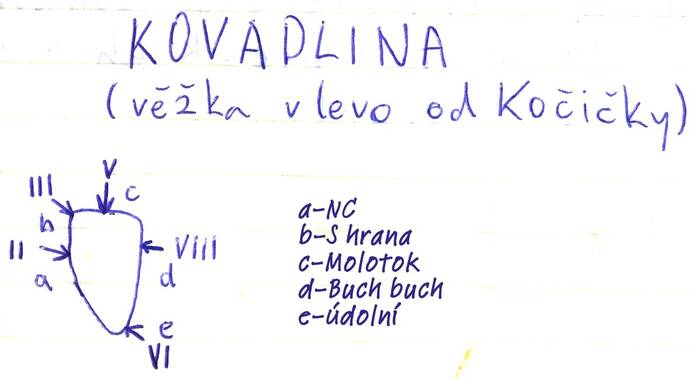 KOVADLINA
(věžka vlevo od Kočičky)
V
III
c
b
II
VIII
a
d
e
VI
a-NC
b-S hrana
c-Molotok
d-Buch buch
e-údolní